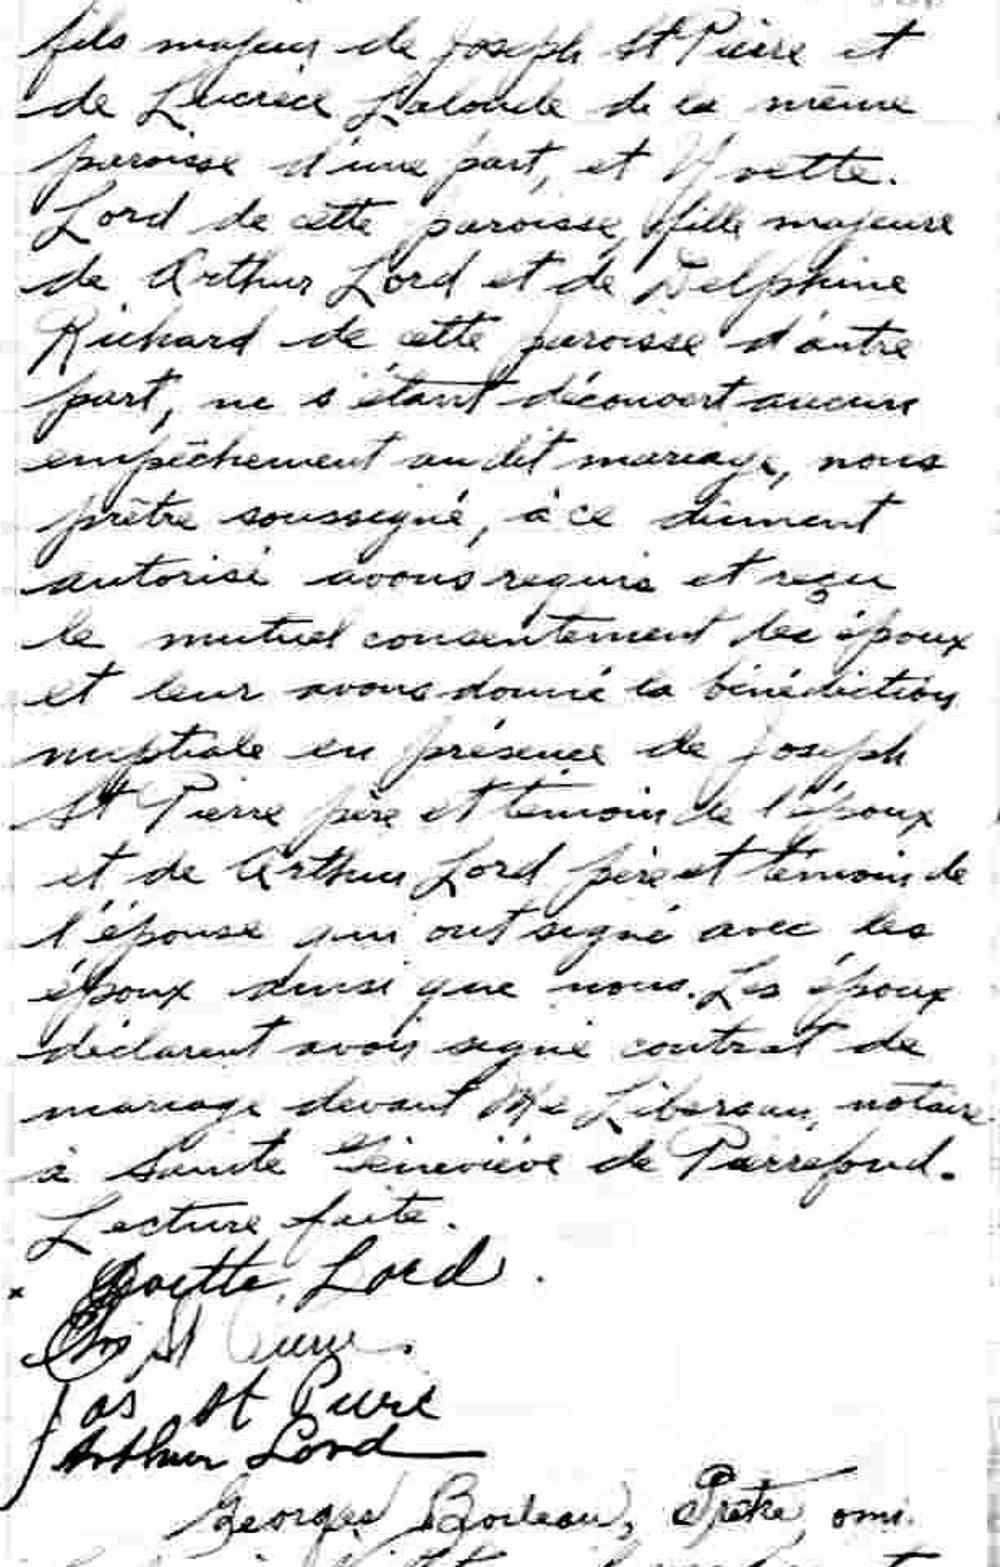 fils majeur de Joseph St Pierre et
de Lucrèce Lalonde de la même
paroisse d'une part, et Yvette.
Lord de cette paroisse, fille majeure
de Arthur Lord et de Delphine
Richard de cette paroisse d'autre
part, ne s'étant découvert aucun
empêchement audit mariage, nous
prêtre soussigné, à ce dûment
autorisé avons requis et reçu
le mutuel consentement des époux
et leur avons donné la bénédiction
nuptiale en présence de Joseph
St Pierre père et témoin de l'époux
et de Arthur Lord père et témoin de
l'épouse qui ont signé avec les
époux ainsi que nous. Les époux
déclarent avoir signé contrat de
mariage devant Me Libersan, notaire
à Sainte Geneviève de Pierrefond.
Lecture faite.
x Yvette Lord.
St Pierre
Jos St Pierre
Arthur Lord
Georges Boileau, Ptre, omi.